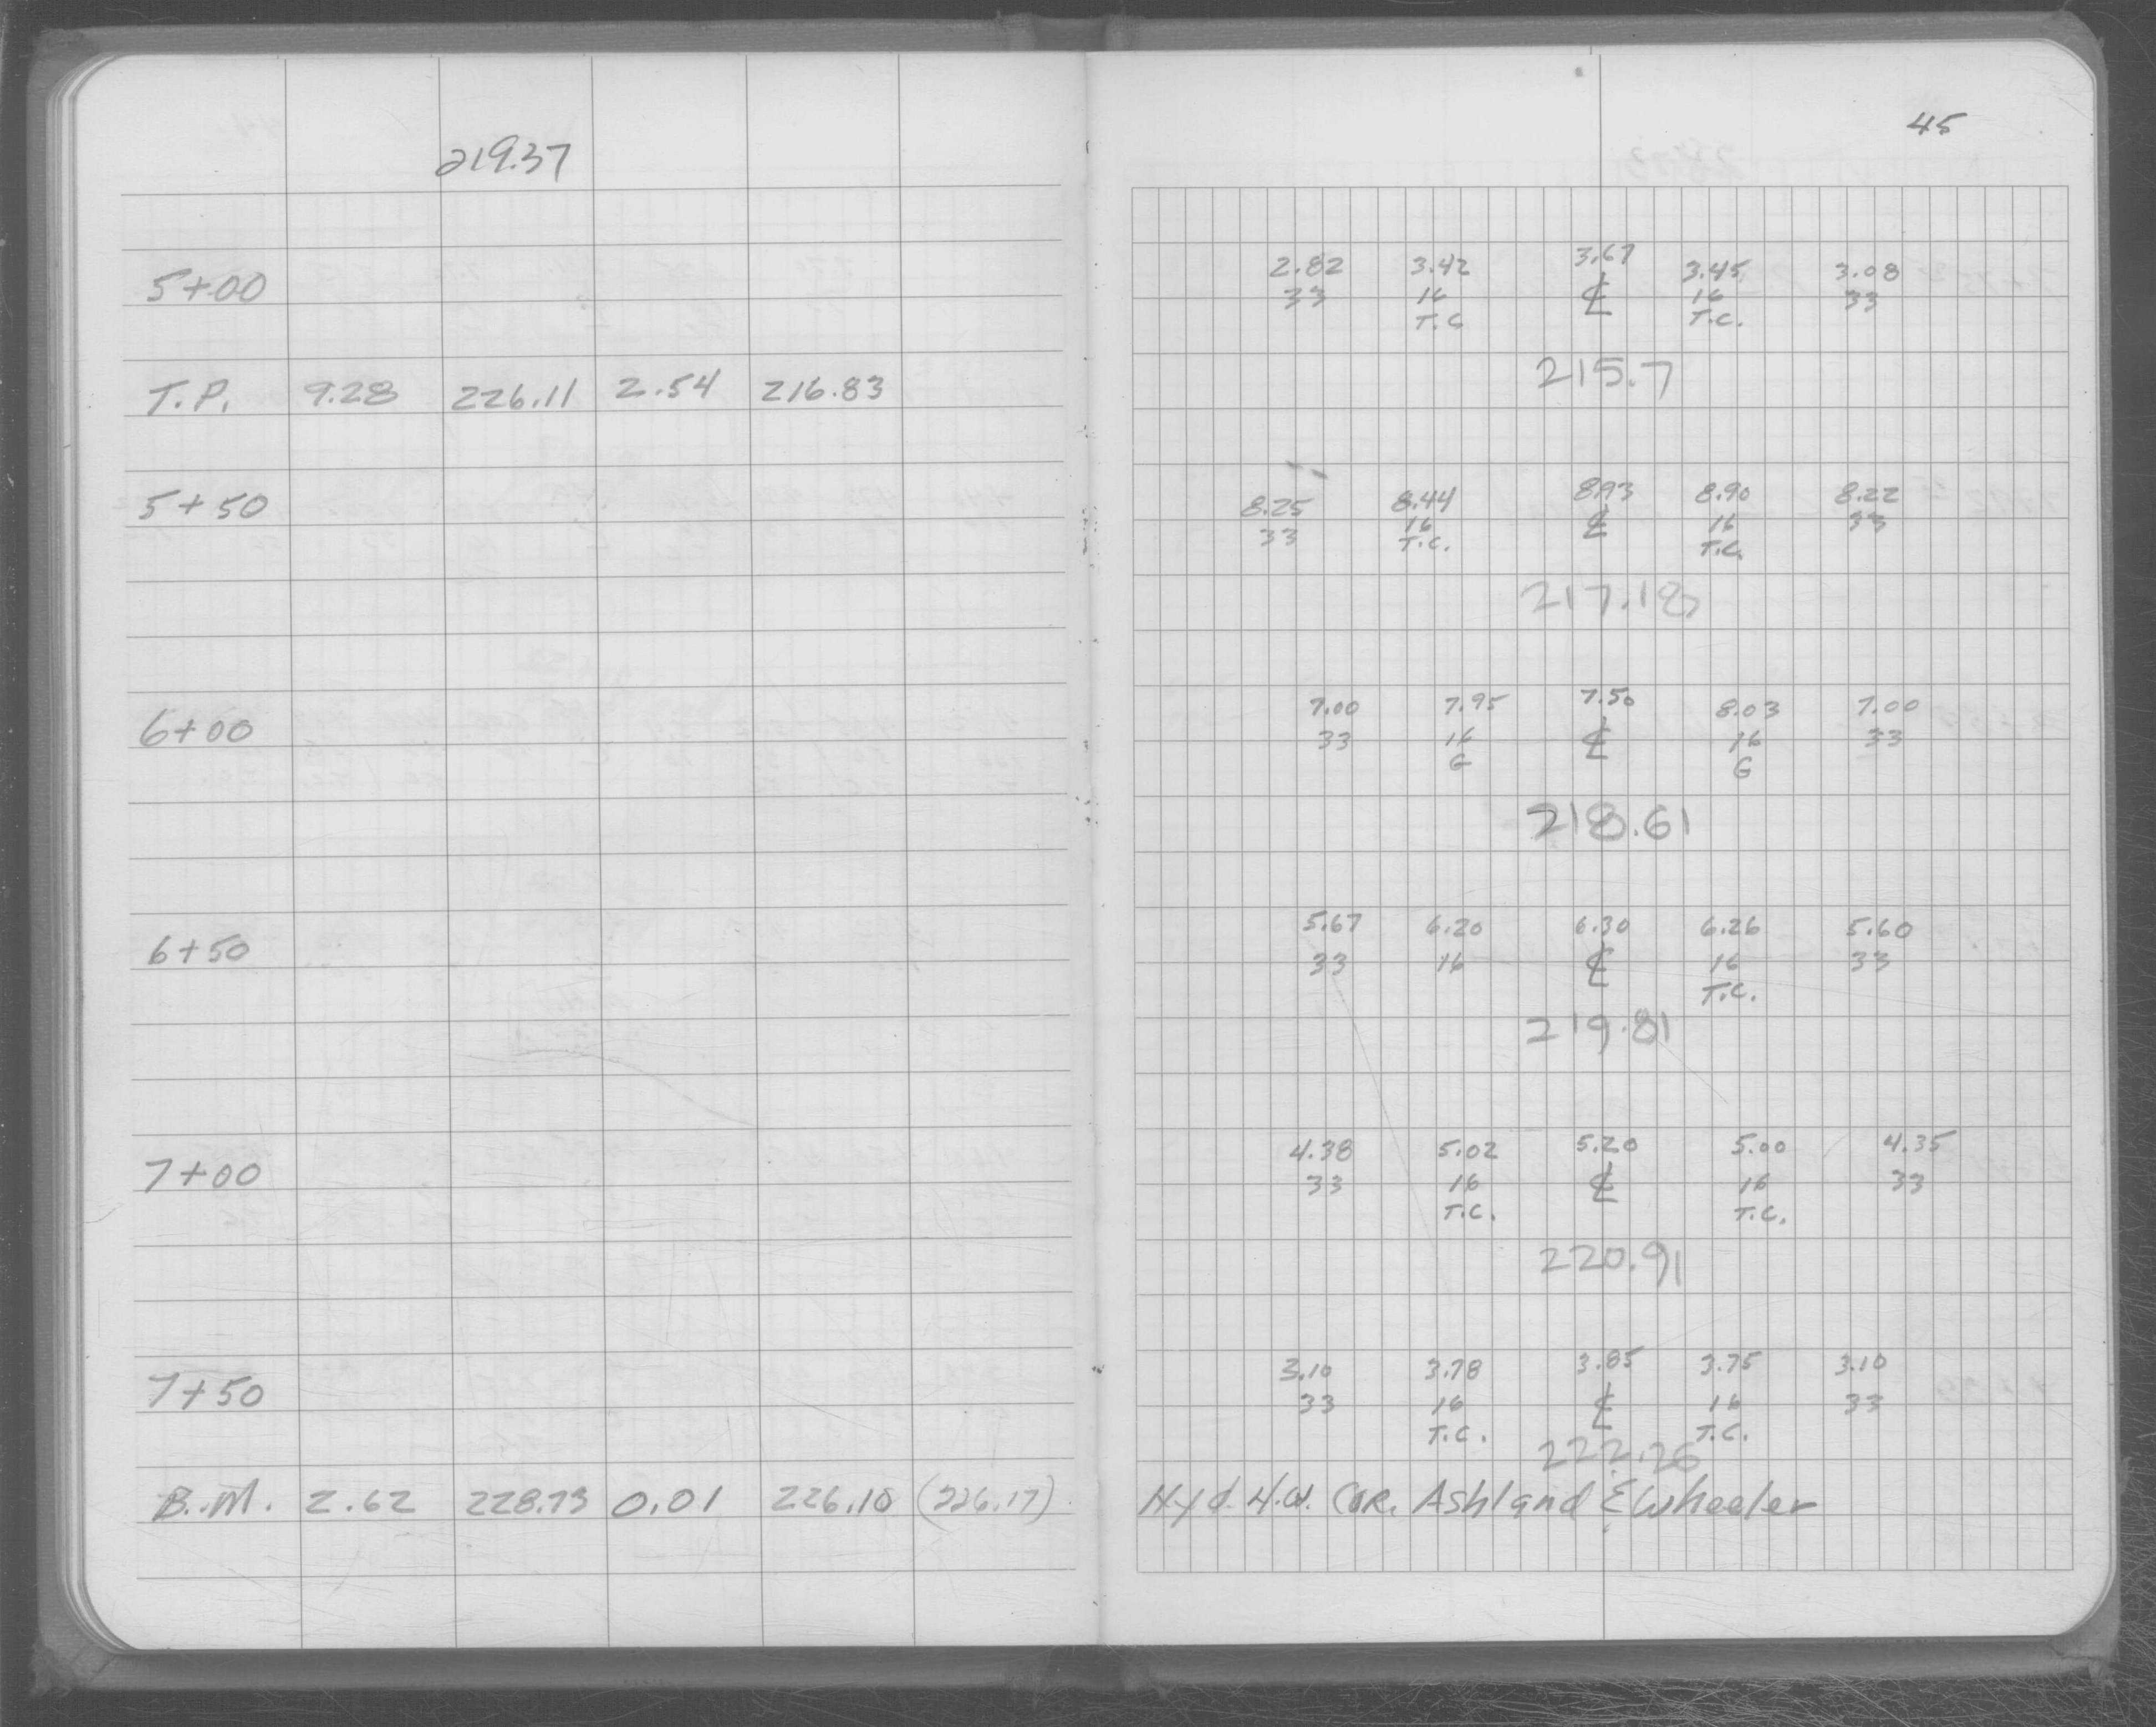 45
219.37
2.82 3.42 3.67 3.45 3.08
5+00 33 16 ℄ 16 33
T.C. T.C.
215.7
T.P. 9.28 226.11 2.54 216.83
8.25 8.44 8.93 8.90 8.22
5+50 33 16 ℄ 16 33
T.C. T.C.
217.18
7.00 7.95 7.50 8.03 7.00
6+00 33 16 ℄ 16 33
G G
218.61
5.67 6.20 6.30 6.26 5.60
6+50 33 16 ℄ 16 33
T.C.
219.81
4.38 5.02 5.20 5.00 4.35
7+00 33 16 ℄ 16 33
T.C. T.C.
220.91
3.10 3.78 3.85 3.75 3.10
7+50 33 16 ℄ 16 33
T.C. T.C.
222.26
B.M. 2.62 228.73 0.01 226.10 (226.17) Hyd. N.W. COR. Ashland & Wheeler